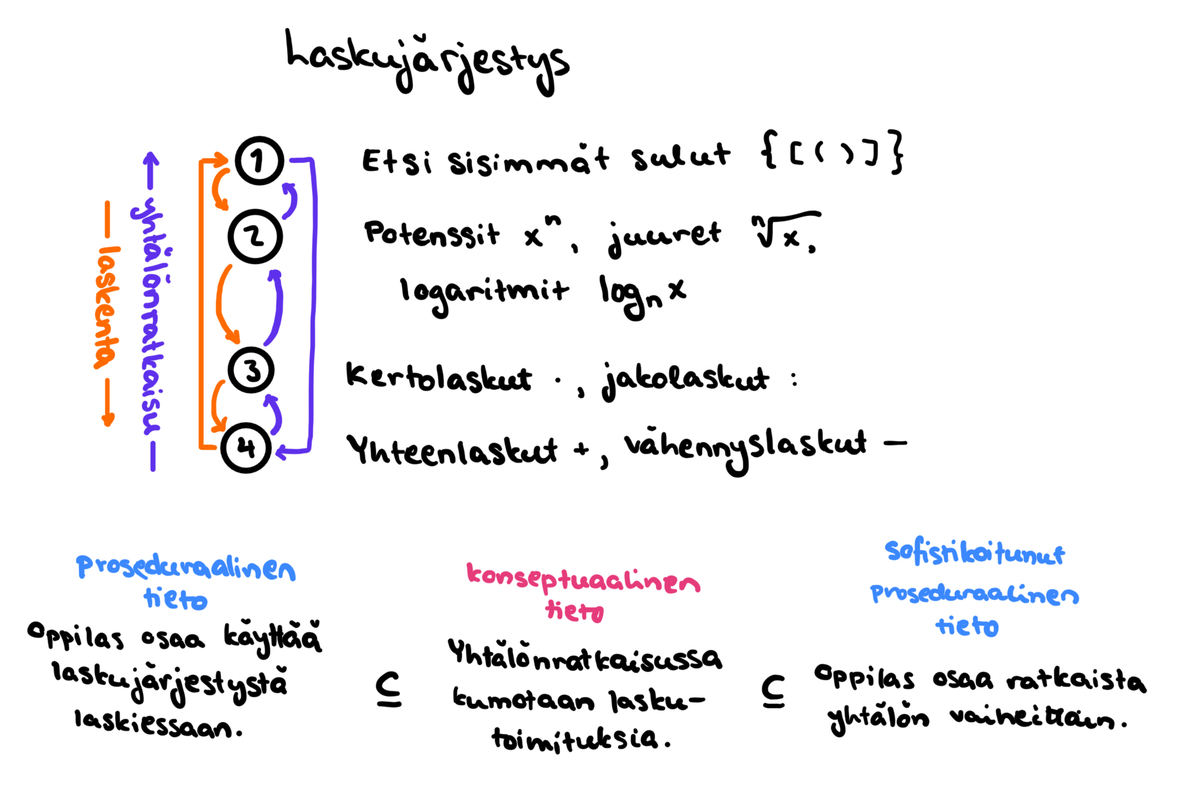 Laskujärjestys
1 Etsi sisimmät sulut {[()]}
2 Potenssit xⁿ, juuret ⁿ√x,
logaritmit logₙ x
3 Kertolaskut ·, jakolaskut :
4 Yhteenlaskut +, vähennyslaskut −
← yhtälönratkaisu —
— laskenta →
proseduraalinen
tieto
Oppilas osaa käyttää
laskujärjestystä
laskiessaan.
⊆
konseptuaalinen
tieto
Yhtälönratkaisussa
kumotaan lasku-
toimituksia.
⊆
sofistikoitunut
proseduraalinen
tieto
Oppilas osaa ratkaista
yhtälön vaiheittain.